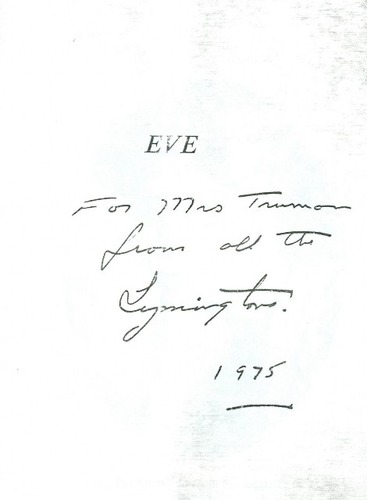 EVE
For Mrs Truman
from all the
Lymingtons.
1975